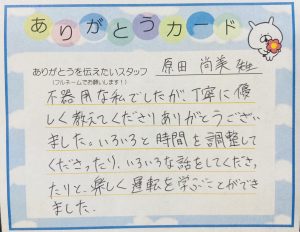 ありがとうカード
ありがとうを伝えたいスタッフ
(フルネームでお願いします!)
原田 尚美
不器用な私でしたが、丁寧に優
しく教えてくださりありがとうござい
ました。いろいろと時間を調整して
くださったり、いろいろな話をしてくださっ
たりと、楽しく運転を学ぶことができ
ました。